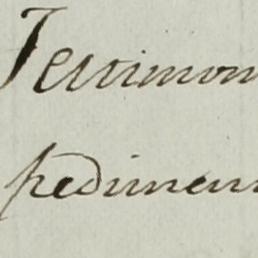 Testimon
pedimen